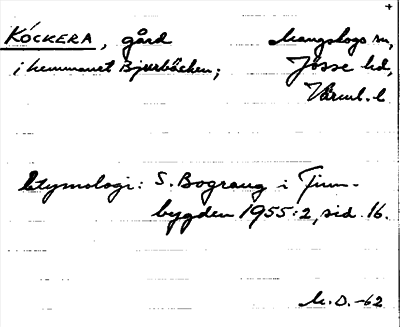 KÖCKERA, gård Mangskogs sn,
i hemmanet Bjurbäcken; Jösse hd,
Värml. l.
Etymologi: S. Bograng i Finn-
bygden 1955:2, sid. 16.
M.D. -62